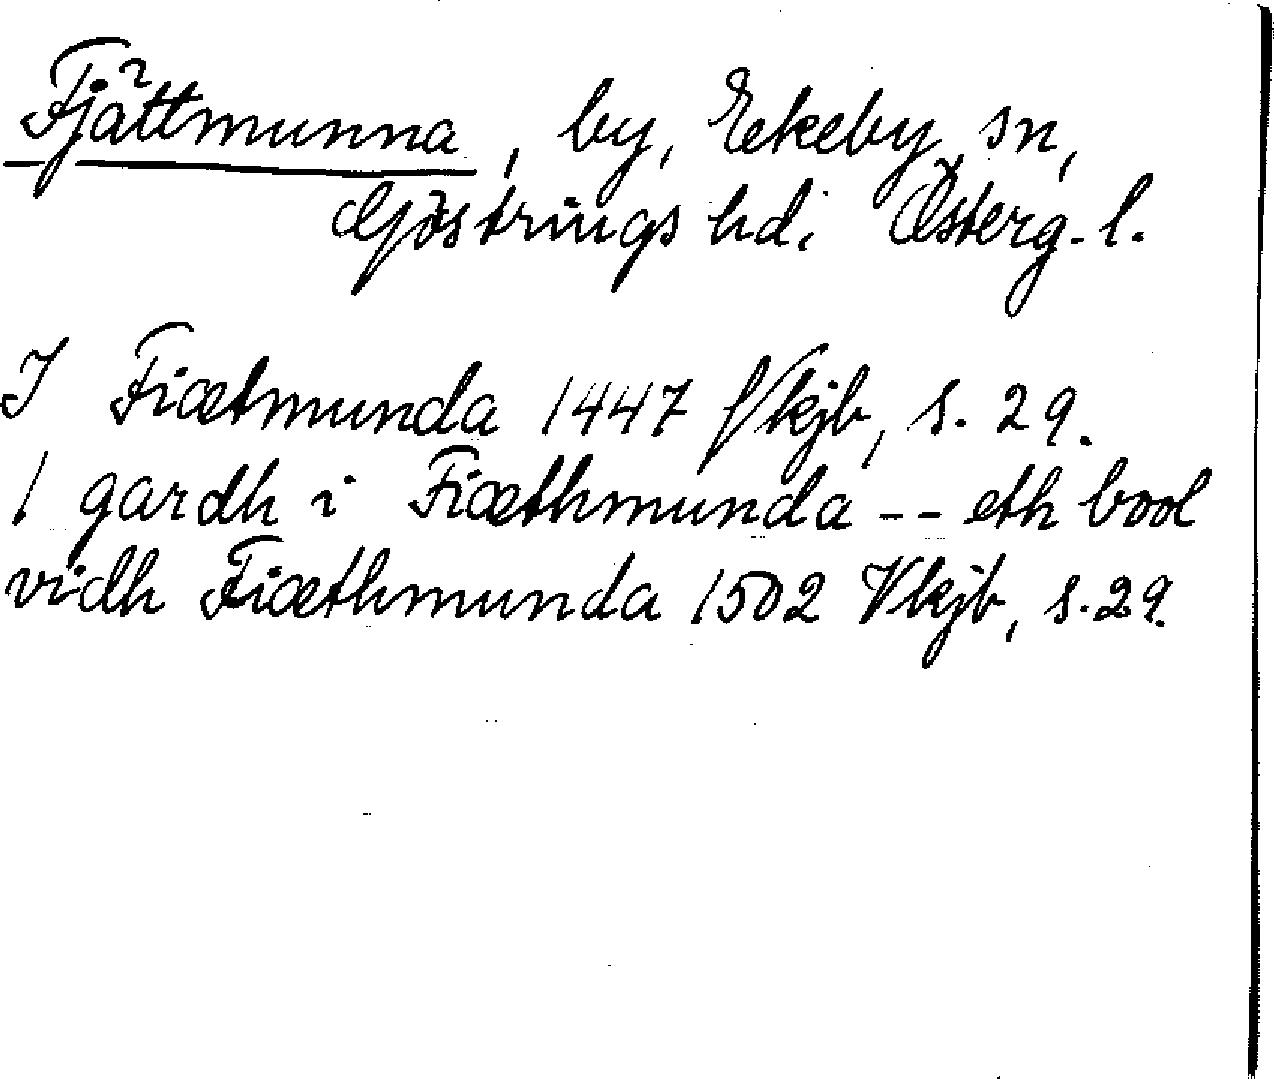 Fjättmunna, by, Ekeby sn,
Göstrings hd. Österg. l.
I Fiætmunda 1447 Vkjb, s. 29.
1 gardh i Fiæthmunda -- eth bool
vidh Fiæthmunda 1502 Vkjb, s. 29.